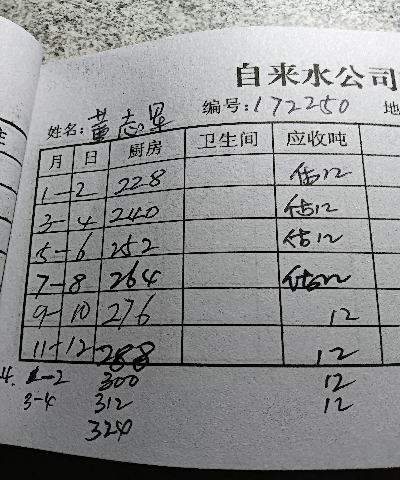 自来水公司
编号:172250 地
姓名:董志军
月 日 厨房 卫生间 应收吨
1-2 228 估12
3-4 240 估12
5-6 252 估12
7-8 264 估12
9-10 276 12
11-12 288 12
4. 1-2 300 12
3-4 312 12
324